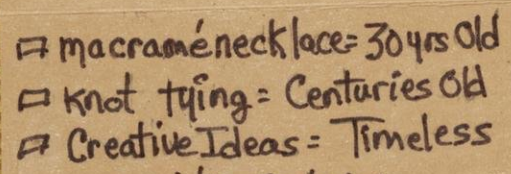 macramé necklace = 30 yrs Old
Knot tying = Centuries Old
Creative Ideas = Timeless